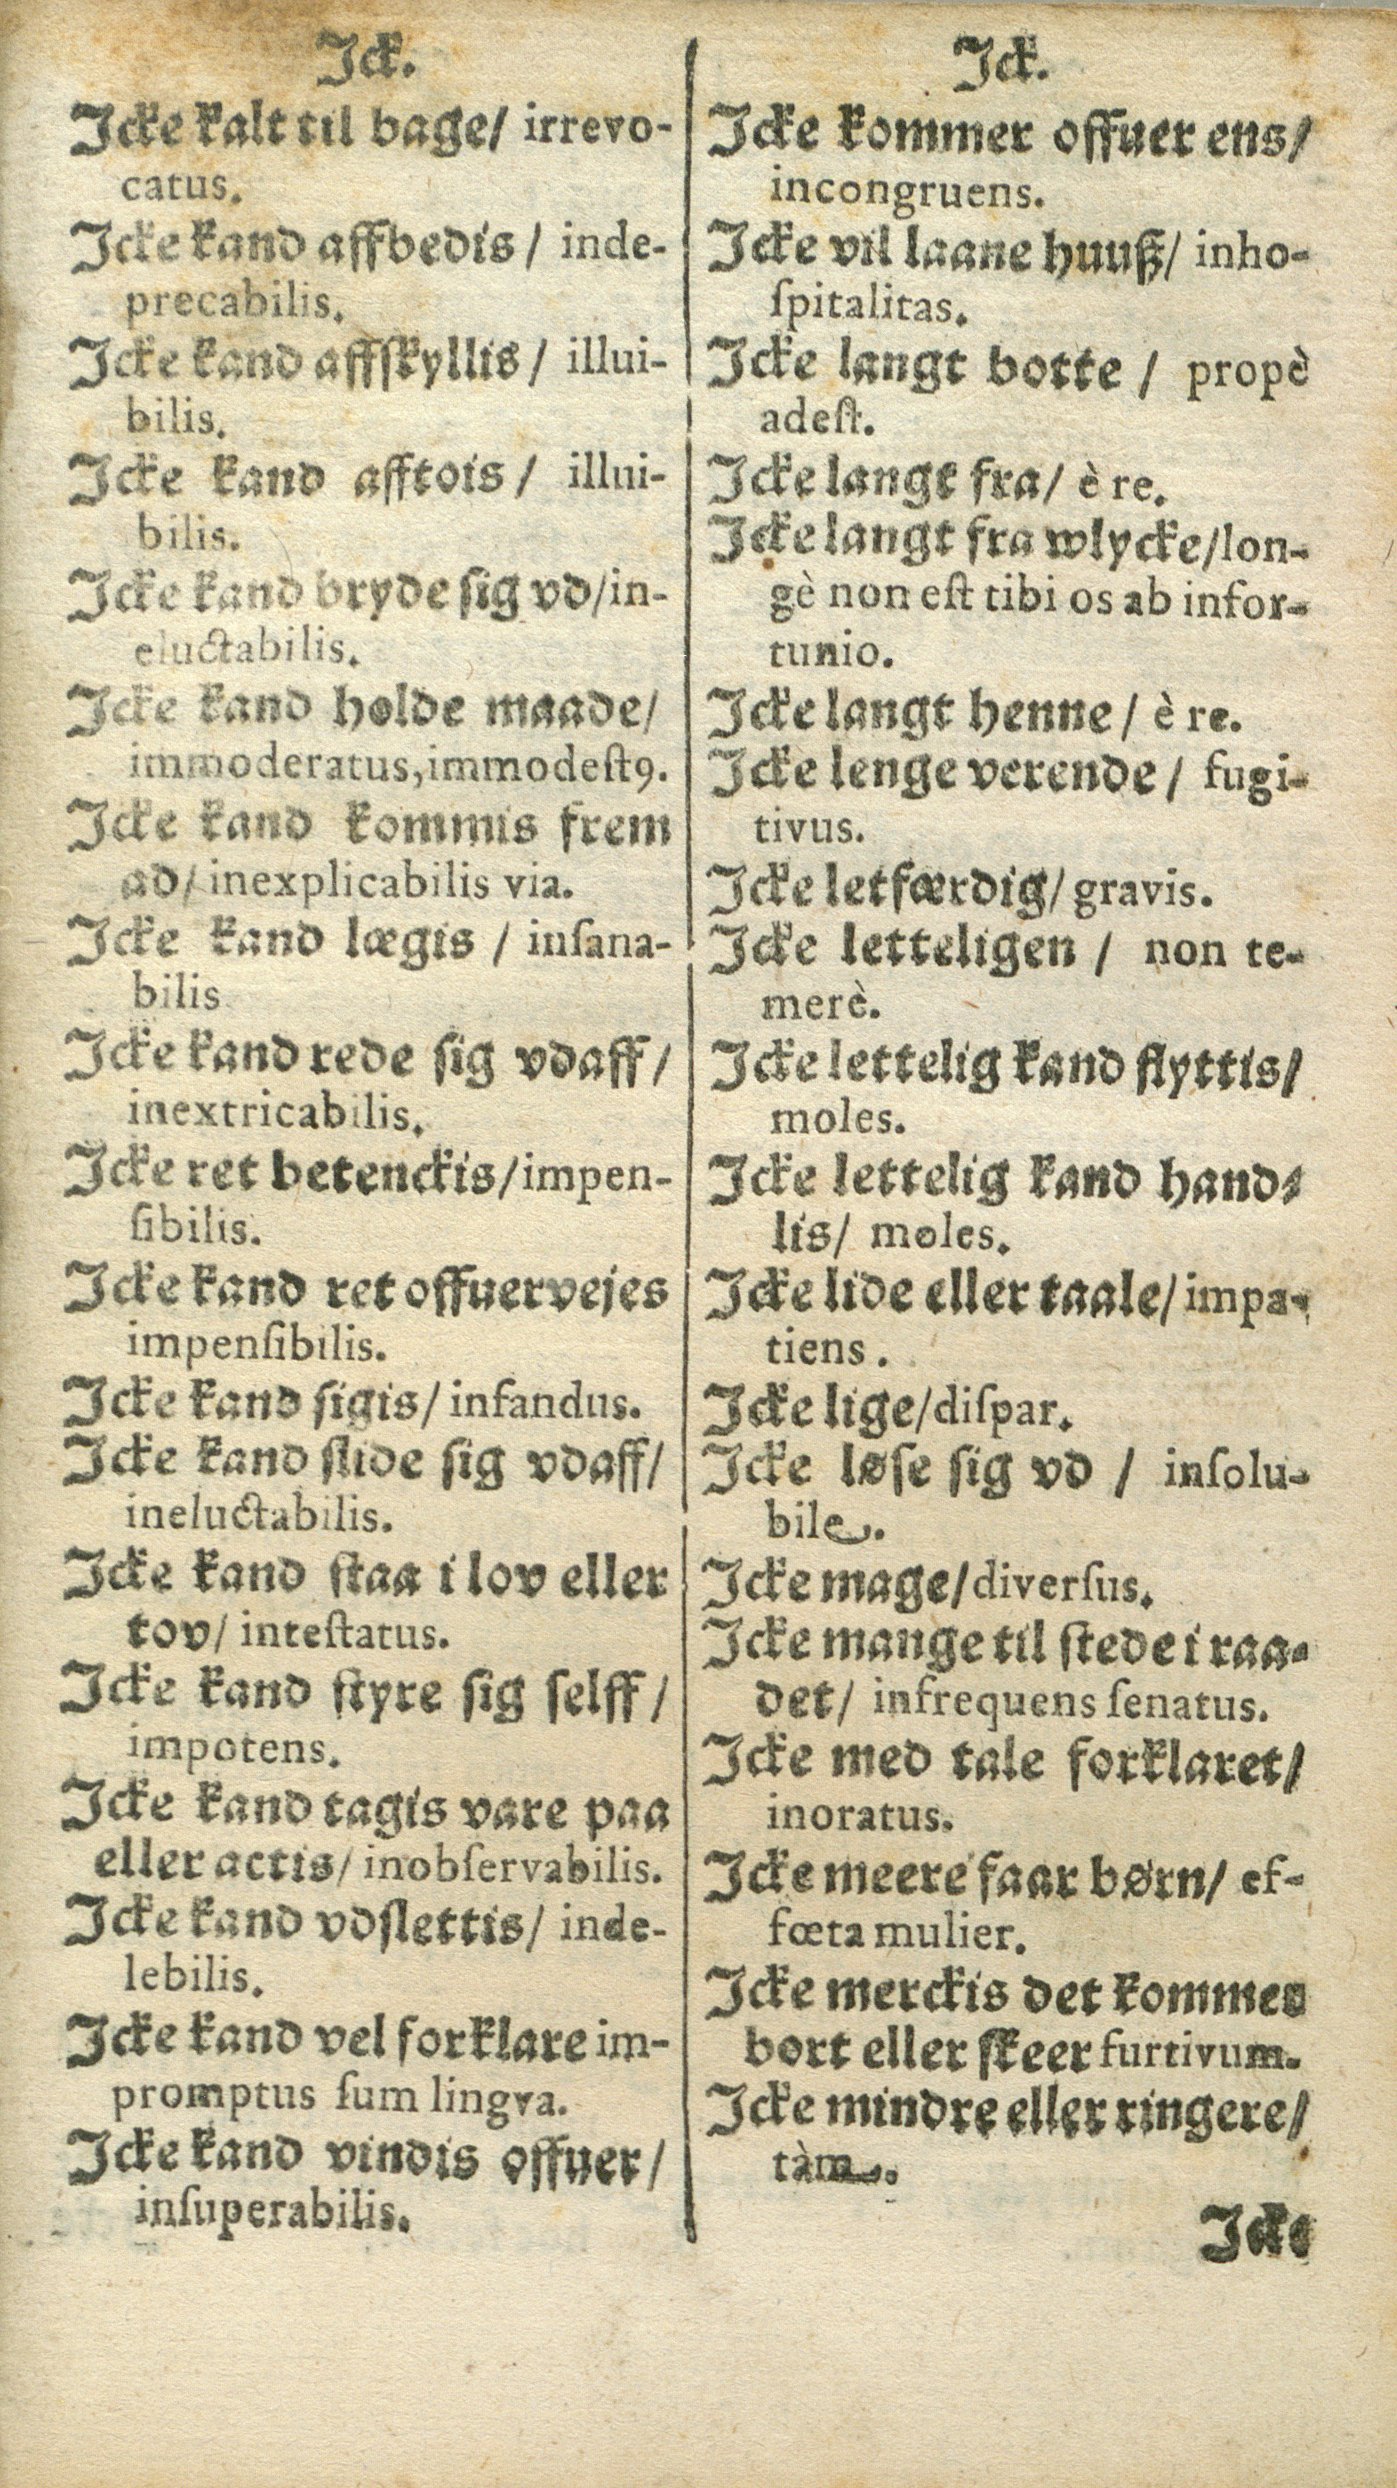 Ick.
Icke kalt til bage/ irrevo-
catus.
Icke kand affbedis/ inde-
precabilis.
Icke kand affſkyllis/ illui-
bilis.
Icke kand afftois/ illui-
bilis.
Icke kand bryde ſig vd/in-
eluctabilis.
Icke kand holde maade/
immoderatus,immodeſtꝰ.
Icke kand kommis frem
ad/ inexplicabilis via.
Icke kand lægis / inſana-
bilis
Icke kand rede ſig vdaff/
inextricabilis.
Icke ret betenckis/impen-
ſibilis.
Icke kand ret offuervejes
impenſibilis.
Icke kand ſigis/ infandus.
Icke kand ſlide ſig vdaff/
ineluctabilis.
Icke kand ſtaa i lov eller
tov/ inteſtatus.
Icke kand ſtyre ſig ſelff/
impotens.
Icke kand tagis vare paa
eller actis/ inobſervabilis.
Icke kand vdſlettis/ inde-
lebilis.
Icke kand vel forklare im-
promptus ſum lingva.
Icke kand vindis offuer/
inſuperabilis.
Ick.
Icke kommer offuer ens/
incongruens.
Icke vil laane huuß/ inho-
ſpitalitas.
Icke langt botte / propè
adeſt.
Icke langt fra/ è re.
Icke langt fra wlycke/lon-
gè non eſt tibi os ab infor-
tunio.
Icke langt henne/ è re.
Icke lenge verende/ fugi-
tivus.
Icke letfærdig/ gravis.
Icke letteligen / non te-
merè.
Icke lettelig kand flyttis/
moles.
Icke lettelig kand hand-
lis/ moles.
Icke lide eller taale/ impa-
tiens.
Icke lige/diſpar.
Icke løſe ſig vd / inſolu-
bile.
Icke mage/diverſus.
Icke mange til ſtede i raa-
det/ infrequens ſenatus.
Icke med tale forklaret/
inoratus.
Icke meere faar børn/ ef-
fœta mulier.
Icke merckis det kommer
bort eller ſkeer furtivum.
Icke mindre eller ringere/
tàm.
Icke